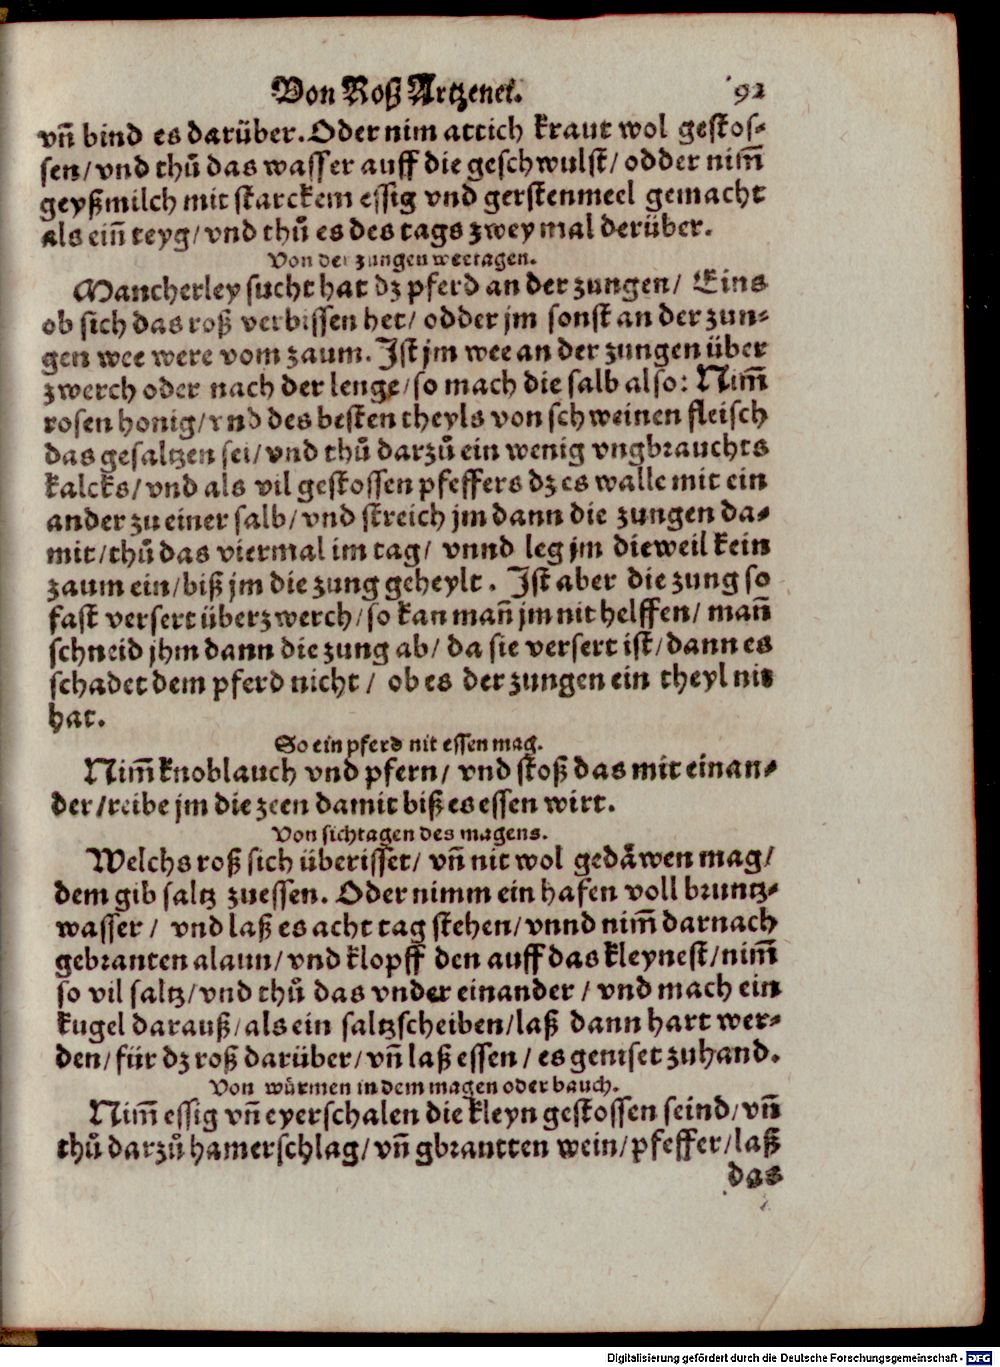 Von Roß Artzenei. 92
vñ bind es darüber. Oder nim attich kraut wol gestos-
sen/ vnd thů das wasser auff die geschwulst/ odder nim̃
geyßmilch mit starckem essig vnd gerstenmeel gemacht
als eiñ teyg/ vnd thů es des tags zwey mal derüber.
Von der zungen weetagen.
Mancherley sucht hat dz pferd an der zungen/ Eins
ob sich das roß verbissen het/ odder jm sonst an der zun-
gen wee were vom zaum. Ist jm wee an der zungen über
zwerch oder nach der lenge/ so mach die salb also: Nim̃
rosen honig/ vnd des besten theyls von schweinen fleisch
das gesaltzen sei/ vnd thů darzů ein wenig vngbrauchts
kalcks/ vnd als vil gestossen pfeffers dz es walle mit ein
ander zu einer salb/ vnd streich jm dann die zungen da-
mit/ thů das viermal im tag/ vnnd leg jm dieweil kein
zaum ein/ biß jm die zung geheylt. Ist aber die zung so
fast versert überzwerch/ so kan mañ jm nit helffen/ mañ
schneid jhm dann die zung ab/ da sie versert ist/ dann es
schadet dem pferd nicht/ ob es der zungen ein theyl nit
hat.
So ein pferd nit essen mag.
Nim̃ knoblauch vnd pfern/ vnd stoß das mit einan-
der/ reibe jm die zeen damit biß es essen wirt.
Von sichtagen des magens.
Welchs roß sich überisset/ vñ nit wol gedäwen mag/
dem gib saltz zuessen. Oder nimm ein hafen voll bruntz-
wasser/ vnd laß es acht tag stehen/ vnnd nim̃ darnach
gebranten alaun/ vnd klopff den auff das kleynest/ nim̃
so vil saltz/ vnd thů das vnder einander/ vnd mach ein
kugel darauß/ als ein saltzscheiben/ laß dann hart wer-
den/ für dz roß darüber/ vñ laß essen/ es geniset zuhand.
Von würmen in dem magen oder bauch.
Nim̃ essig vñ eyerschalen die kleyn gestossen seind/ vñ
thů darzů hamerschlag/ vñ gbrantten wein/ pfeffer/ laß
das
Digitalisierung gefördert durch die Deutsche Forschungsgemeinschaft - DFG